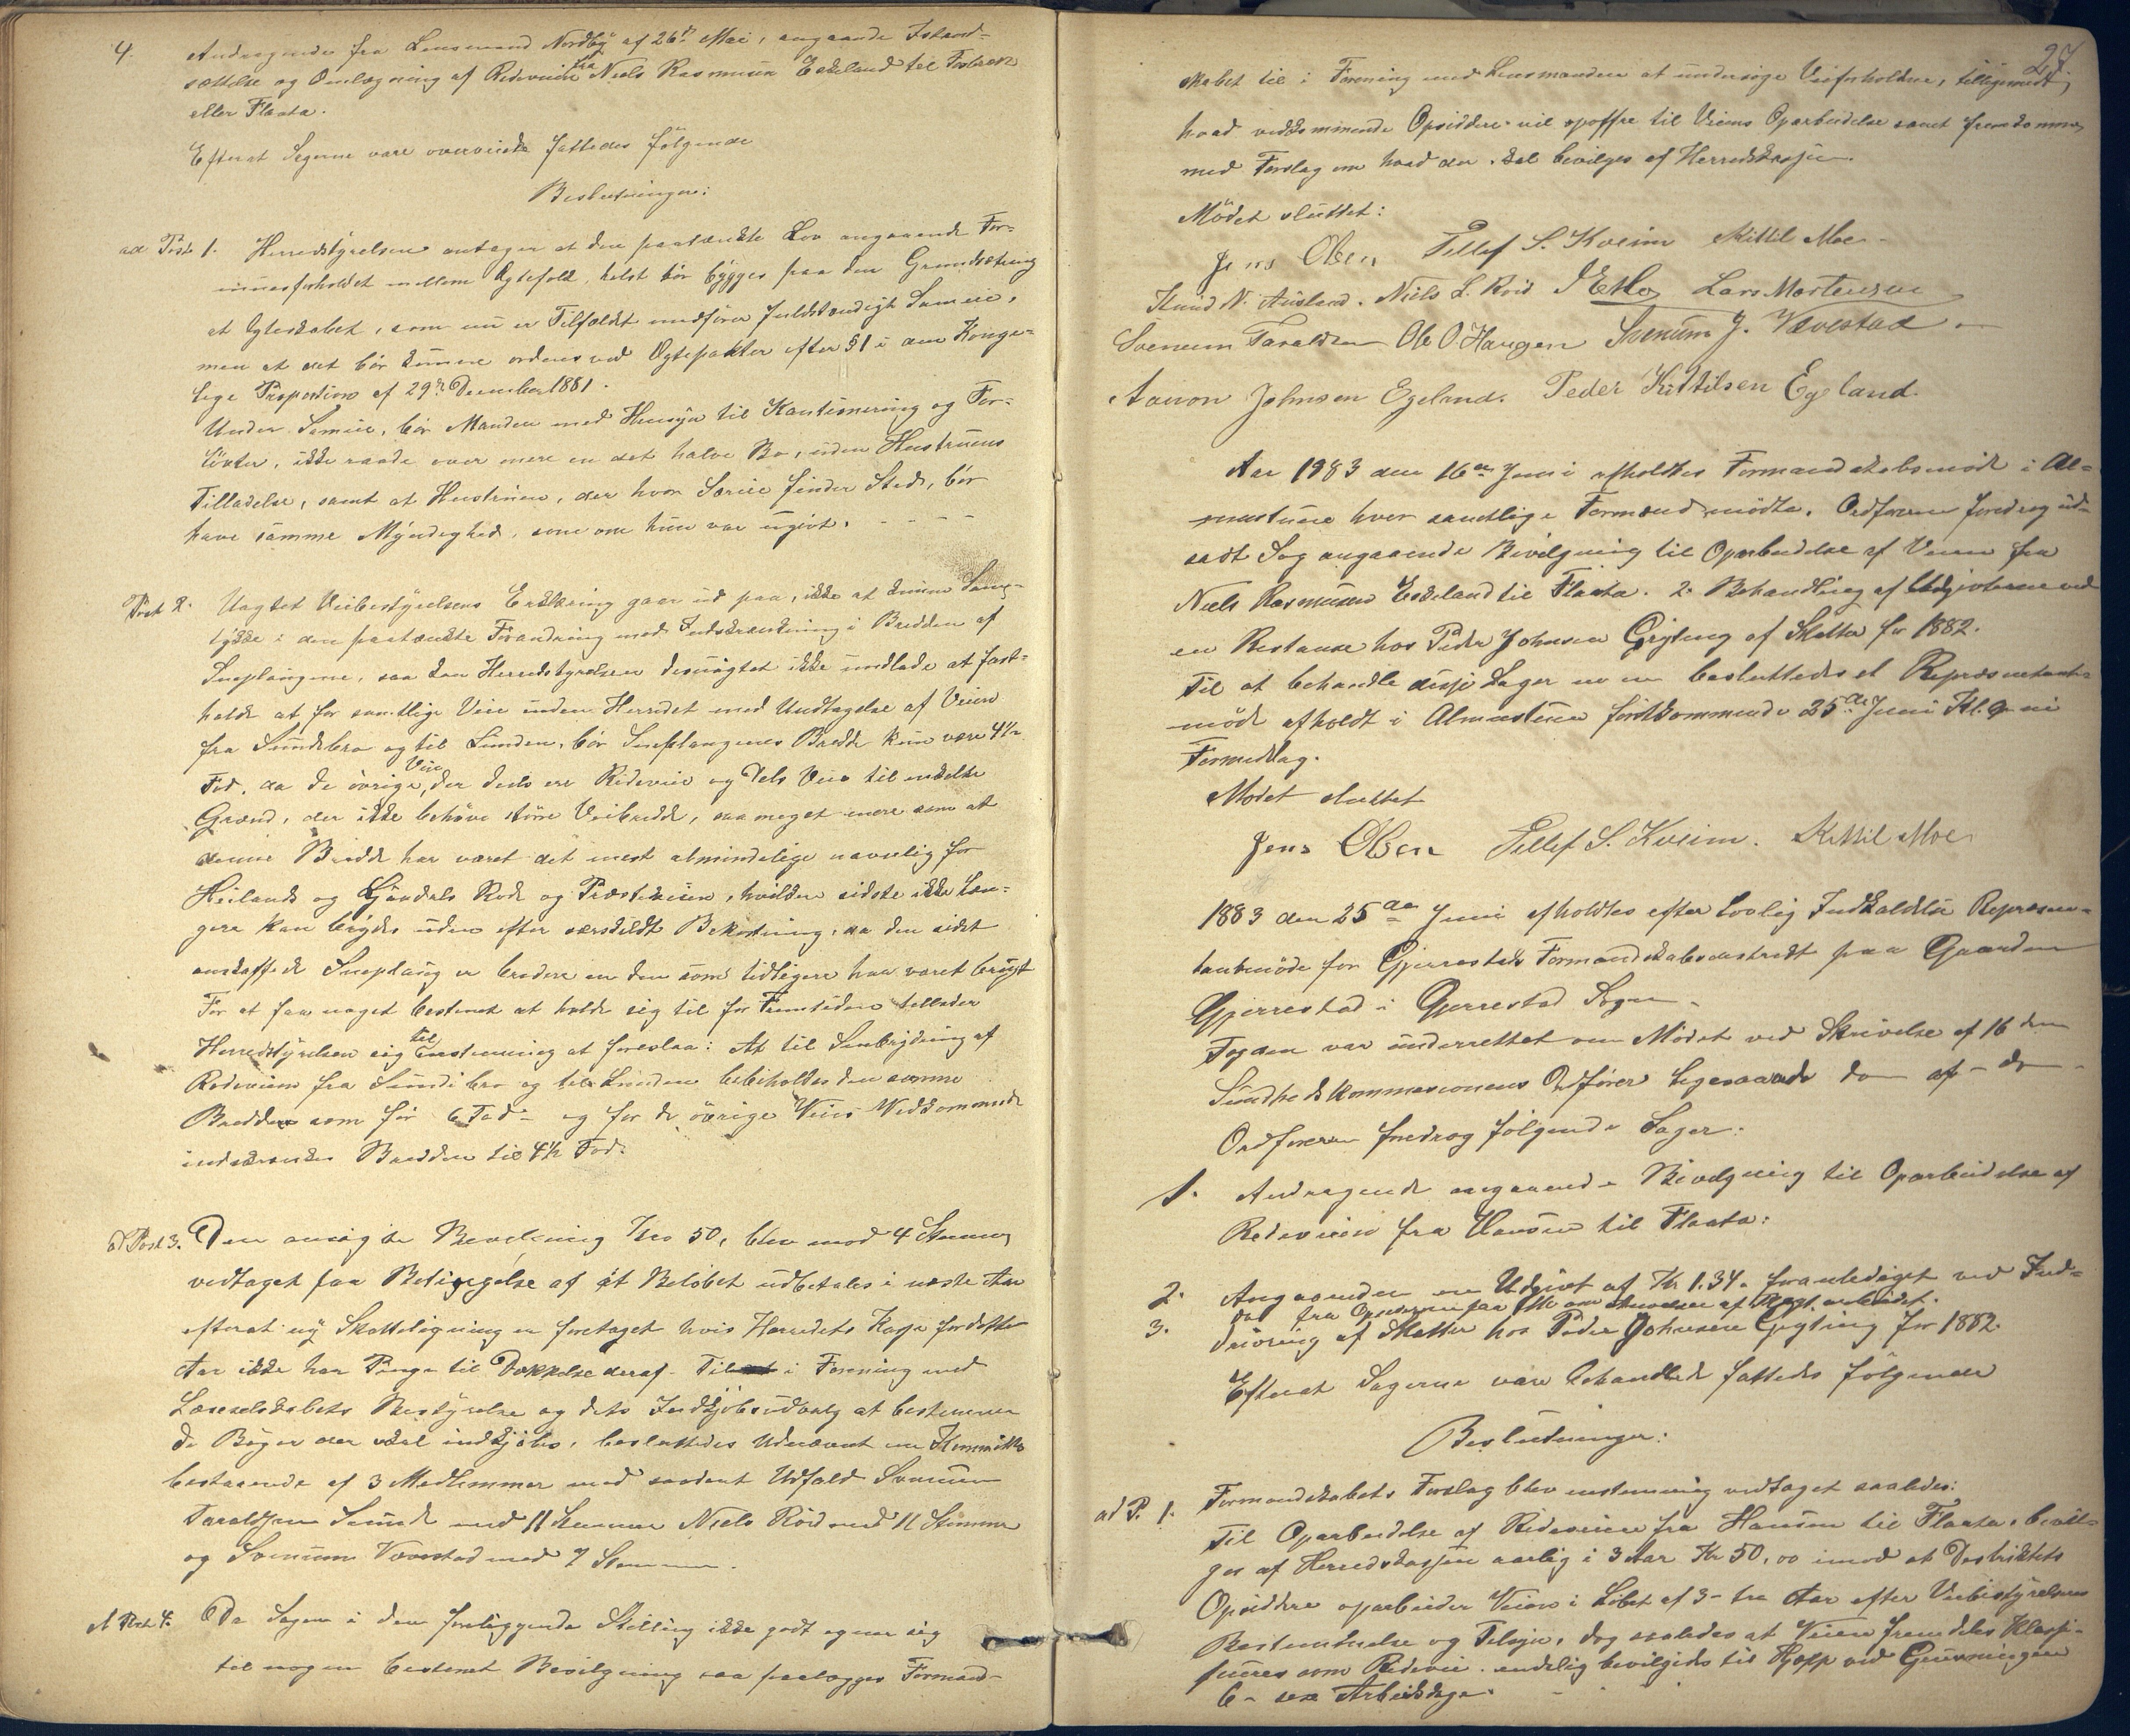 4. Andragende fra Lensmand Nordbÿ af 26de Mai, angaaende Istand-
sættelse og Omlægning af Rideveien fra Niels Rasmusen Eskeland til
eller Flaata.
Efterat Sagerne vare overveiede fattedes følgende
Beslutninger:
ad Post 1. Herredstÿrelsen antager at den paatænkte Lov angaaende For-
muesforholdet mellem Ægtefolk, helst bör bÿgges paa den Grundsætning
at Ægteskabet, som nu er Tilfældet medförer fuldstændigt Sameie,
men at det bör kunne ordnes ved Ægtepakter efter §1 i den Konge-
lige Proposition af 29de December 1881.
Under Sameie, bör Manden med Hensÿn til Kautionering og For-
löfter, ikke raade over mere en det halve Bo, uden Hustruens
Tilladelse, samt at Hustruen, der hvor Særeie finder Sted, bör
have samme Mÿndighed, som om hun var ugivt. - - - -
Post 2. Uagtet Veibestÿrelsens Erklæring gaar ud paa, ikke at kunne Sam-
tÿkke i den paatænkte Forandring med Indskrænkning i Bredden af
Sneplougene, saa kan Herredstyrelsen desuagtet ikke undlade at fast-
holde at for samtlige Veie inden Herredet med Undtagelse af Veien
fra Sundebro og til Linden, bör Sneplougenes Bredde kun være 4½
Fod, da de övrige Veie, der dels ere Rideveie og Dels Veie til enkelte
Grænd, der ikke behöve större Veibredde, saa meget mere som at
denne Bredde har været det mest almindelige navnlig for
Heilands og Gjöndals Rode og Præsteveien, hvilken sidste ikke læn-
gere kan brÿdes uden efter særskildt Bekostning, da den sidst
anskaffede Sneploug er bredere en den som tidligere har været brugt
For at faa noget bestemt at holde sig til for Fremtiden tillader
Herredstÿrelsen sig enstemmig at foreslaa: At til Snebrÿdning af
Rodeveien fra Sundebro og til Linden bibeholdes den samme
Bredde som för 6 Fod - og for de övrige Veies Vedkommende
indskrænkes Bredden til 4½ Fod.
ad Post 3. Den ansögte Bevilgning Kro 50, blev mod 4 Stemmer
vedtaget paa Betingelse af at Belöbet udbetales i næste Aar
efterat nÿ Skatteligning er foretaget hvis Herredets Kasse for dette
Aar ikke har Penge til Dækkelse deraf. Til i Forening med
Læseselskabets Bestÿrelse og dets Indkjöbsudvalg at bestemme
de Böger der skal indkjöbes, besluttedes Udnævnt en Kommitte
bestaaende af 3 Medlemmer med saadant Udfald Svenum
Taraldsen Sunde med 11 Stemmer Niels Röid med 11 Stemmer
og Svenum Vævestad med 7 Stemmer.
ad Post 4. Da Sagen i den foreliggende Stilling ikke godt egner sig
til nogen bestemt Bevilgning saa paalægges Formand-
27.
skabet til i Forening med Lensmanden at undersöge Veiforholdene, tilligemed,
hvad vedkommende Opsiddere vil opoffre til Veiens Oparbeidelse samt fremkomme
med Forslag om hvad der skal bevilges af Herredskassen.
Mödet sluttet:
Jens Olsen Tellef S. Kveim Kittil Moe
Knud N. Ausland. Niels L. Röid Lars Mortensen
Svenum Taraldsen Ole O. Haugen Svenum J. Vævestad
Aanon Johnsen Egeland. Peder Kittilsen Egeland.
Aar 1883 den 16de Juni afholdtes Formandskabsmöde i Al-
mustuene hvor samtlige Formænd mödte. Ordföreren foredrog ud-
sadt Sag angaaende Bevilgning til Oparbeidelse af Veien fra
Niels Rasmusens Eskeland til Flaata. 2. Behandling af Udgivterne ved
en Restance hos Peder Johnsen Grÿting af Skatter for 1882.
Til at behandle disse Sager besluttedes et Repræsentant-
möde afholdt i Almustuen förstkommende 25de Juni Kl. 9 ni
Formiddag.
Mödet sluttet
Jens Olsen Tellef S. Kveim. Kittil Moe
1883 den 25de Juni afholdtes efter Lovlig Indkaldelse Repræsen-
tantmöde for Gjerrestads Formandskabsdistrikt paa Gaarden
Gjerrestad i Gjerrestad Sogn.
Fogden var underrettet om Mödet ved Skrivelse af 16 den
Sundhedskommesionens Ordförer ligesaa do af - do -
Ordföreren foredrog fölgende Sager:
1. Andragende angaaende Bevilgning til Oparbeidelse af
Rideveien fra Hansen til Flaata:
2. Angaaende en Udgivt af Kr 1.34. foranlediget ved Ind-
3.
drivning af Skatter hos Peder Johnsen Grÿting for 1882.
Efterat Sagerne vare behandlede fattedes fölgende
Beslutninger:
ad P. 1. Formandskabets Forslag blev enstemmig vedtaget saaledes:
Til Oparbeidelse af Rideveien fra Hansen til Flaata, bevil-
ges af Herredskassen aarlig i 3 Aar Kr 50,00 imod at Destriktets
Opsiddere oparbeider Veien i Löbet af 3 - tre Aar efter Veibestÿrelsens
Bestemmelse og Tilsyn, dog saaledes at Veien fremdeles Klassi-
fiseres som Rideveie. endelig bevilgedes til Hjælp ved
6 - sex Arbeidsdage.